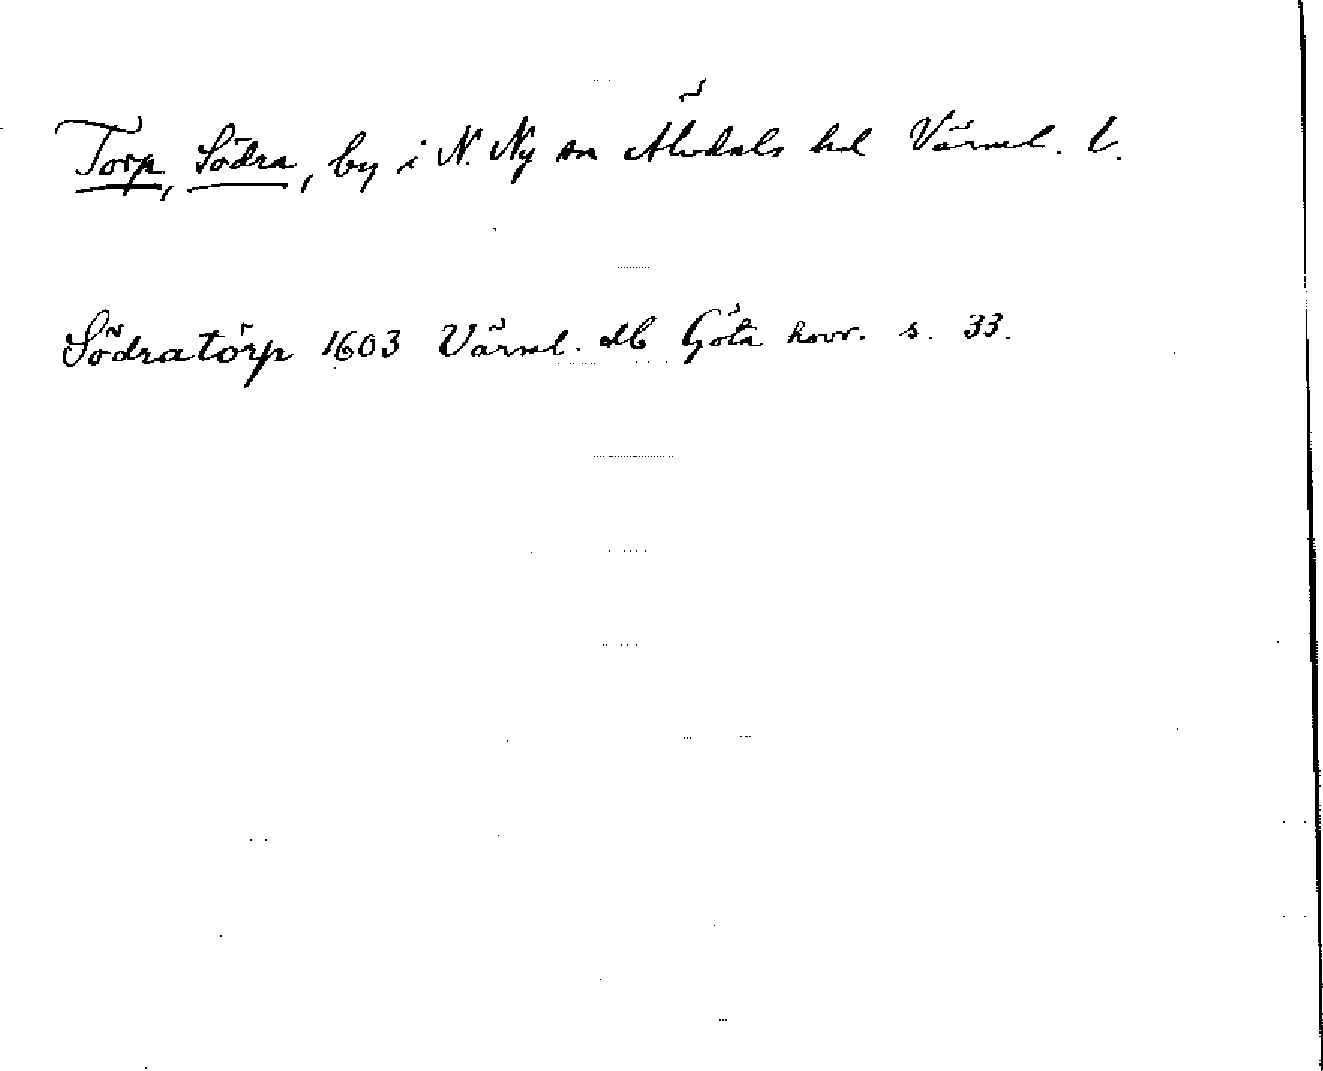 Torp, Södra, by i N. Ny sn Älvdals hd Värml. l.
Södratörp 1603 Värml. db Göta hovr. s. 33.